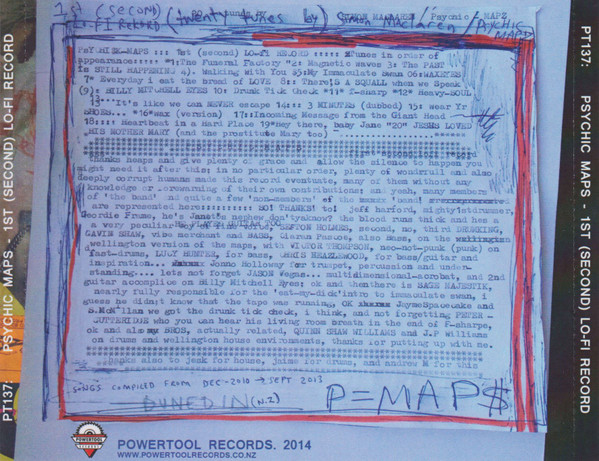 1st (second)
LO-FI REKORD (twenty tunes by) Simon Maclaren / PSYCHIC MAPS
PSYCHIC MAPS - 1ST (SECOND) LO-FI RECORD
PT137:
PSY HISK-MAPS ::: 1st (second) LO-FI RECORD ::::: Tunes in order of
appearance::::: "1:The Funeral Factory "2: Magnetic waves 3: The PAST
is STILL HAPPENING 4). Walking With You 5:My Immaculate Swan 06:WAXEYES
7" Everyday i eat the bread of LOVE 8: There'S A SQUALL when we Speak
(9): BILLY MITCHELL EYES 10: Drunk Tick Check "11" F-sharp "12" Heavy-SOUL
13"'It's like we can NEVER escape 14::: 3 MINUTES (dubbed) 15: wear Yr
SHOES... "16"wax (version) 17::Incoming Message from the Giant Head
18:::: Heartbeat in a Hard Place 19"Hey there, baby Jane "20" JESUS LOVED
HIS MOTHER MARY (and the prostitute Mary too)
thanks heaps and give plenty of grace and allow the silence to happen you
might need it after this: in no particular order, plenty of wonderful and also
deeply corrupt humans made this record eventuate, many of them without any
knowledge or forewarning of their own contributions: and yeah, many members
of 'the band' and quite a few 'non-members' of the band
are represented here::::::::: SO! THANKS! to! jeff harford, mightytistrummer,
Geordie Frome, he's Janets nephew don'tyaknow? the blood runs thick and has a
a very peculiar SEFTON HOLMES, second, no, third DRUMKING,
GAVIN SHAW, vibe merchant one MADE, Ciaran Pascoe, also bass, on the
wellington version of the maps, with VICTOR THOMPSON, neo-not-punk (punk) on
fast-drums, LUCY HUNTER, for bass, for bass/guitar and
inspiration.. Jonno Holloway for trumpet, percussion and under-
standing.... lets not forget JASON Vegas... multidimensional-acrobat, and 2nd
guitar accomplice on Billy Mitchell Eyes: ok and then there is SAGE MAJESTIK,
nearly fully responsible for the 'eat-my-dick'intro to immaculate swan, i
guess he didn;t know that the tape was running, OK JaymeSpacecake and
S.McM'llan who got the drunk tick check, i think, and not forgetting PETER -
GUTTERIDGE who you can hear his living room breath in the end of F-sharpe,
ok and als my BROS, actually related, QUINN SHAW WILLIAMS and J.P Williams
on drums and wellington house environments, thanks for putting up with me.
also to jenk for house, jaime for drums, and andrew M for this
SONGS COMPILED FROM DEC-2010 → SEPT 2013
DUNEDIN (N.Z)
P=MAP$
POWERTOOL
RECORDS
POWERTOOL RECORDS. 2014
WWW.POWERTOOLRECORDS.CO.NZ
PT137:
PSYCHIC MAPS - 1ST (SECOND) LO-FI RECORD